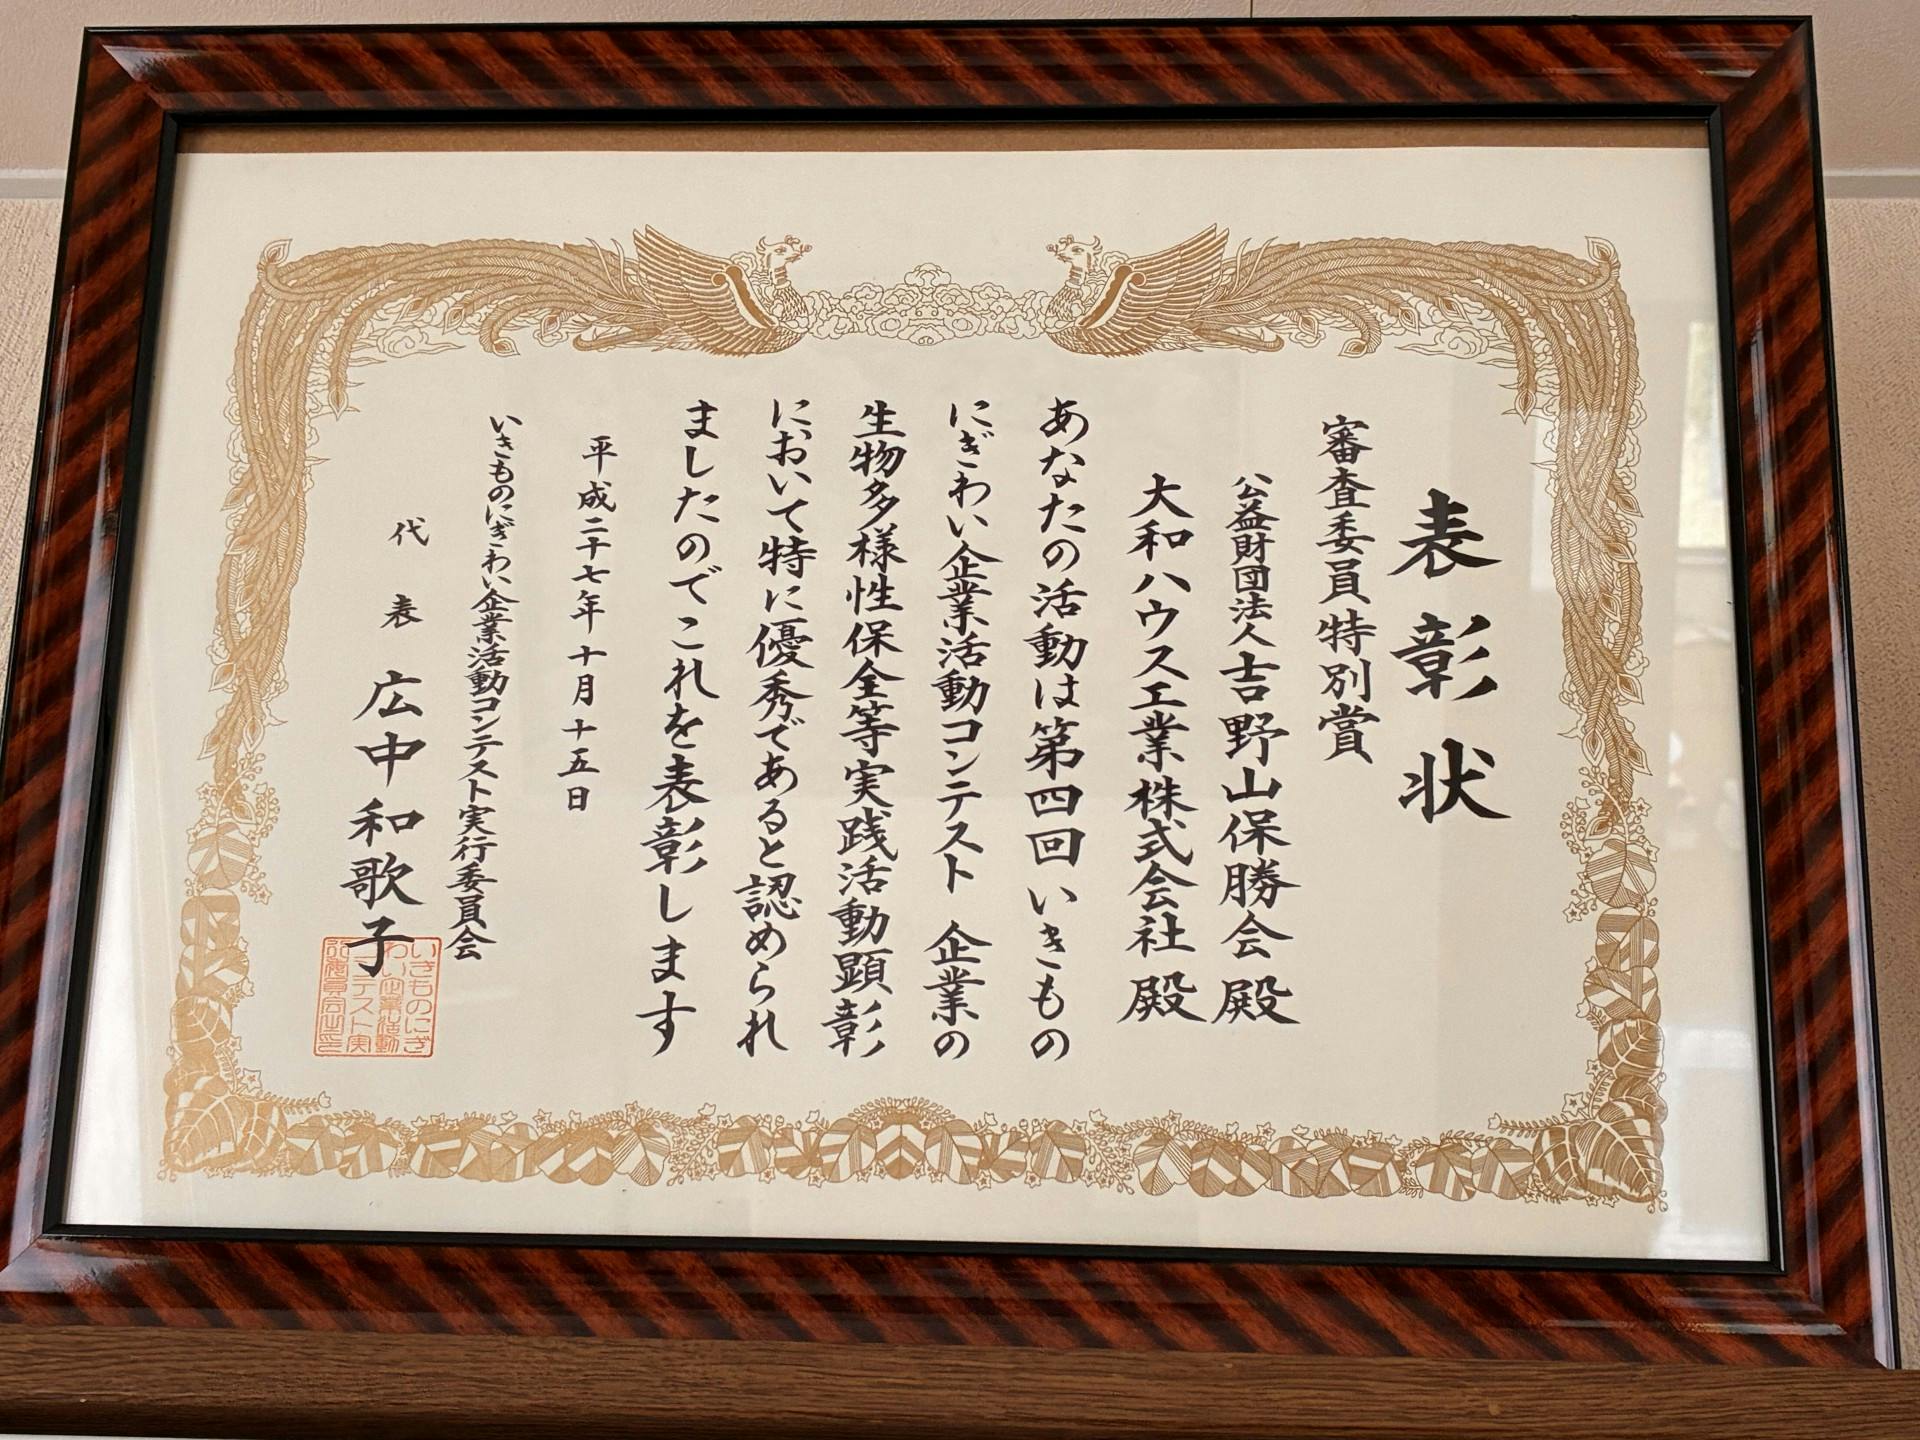 表彰状
審査委員特別賞
公益財団法人吉野山保勝会 殿
大和ハウス工業株式会社 殿
あなたの活動は第四回 いきもの
にぎわい企業活動コンテスト 企業の
生物多様性保全等実践活動顕彰
において特に優秀であると認められ
ましたのでこれを表彰します
平成二十七年十月十五日
いきものにぎわい企業活動コンテスト実行委員会
代表 広中和歌子
いきものにぎ
わい企業活動
コンテスト実
行委員会之印